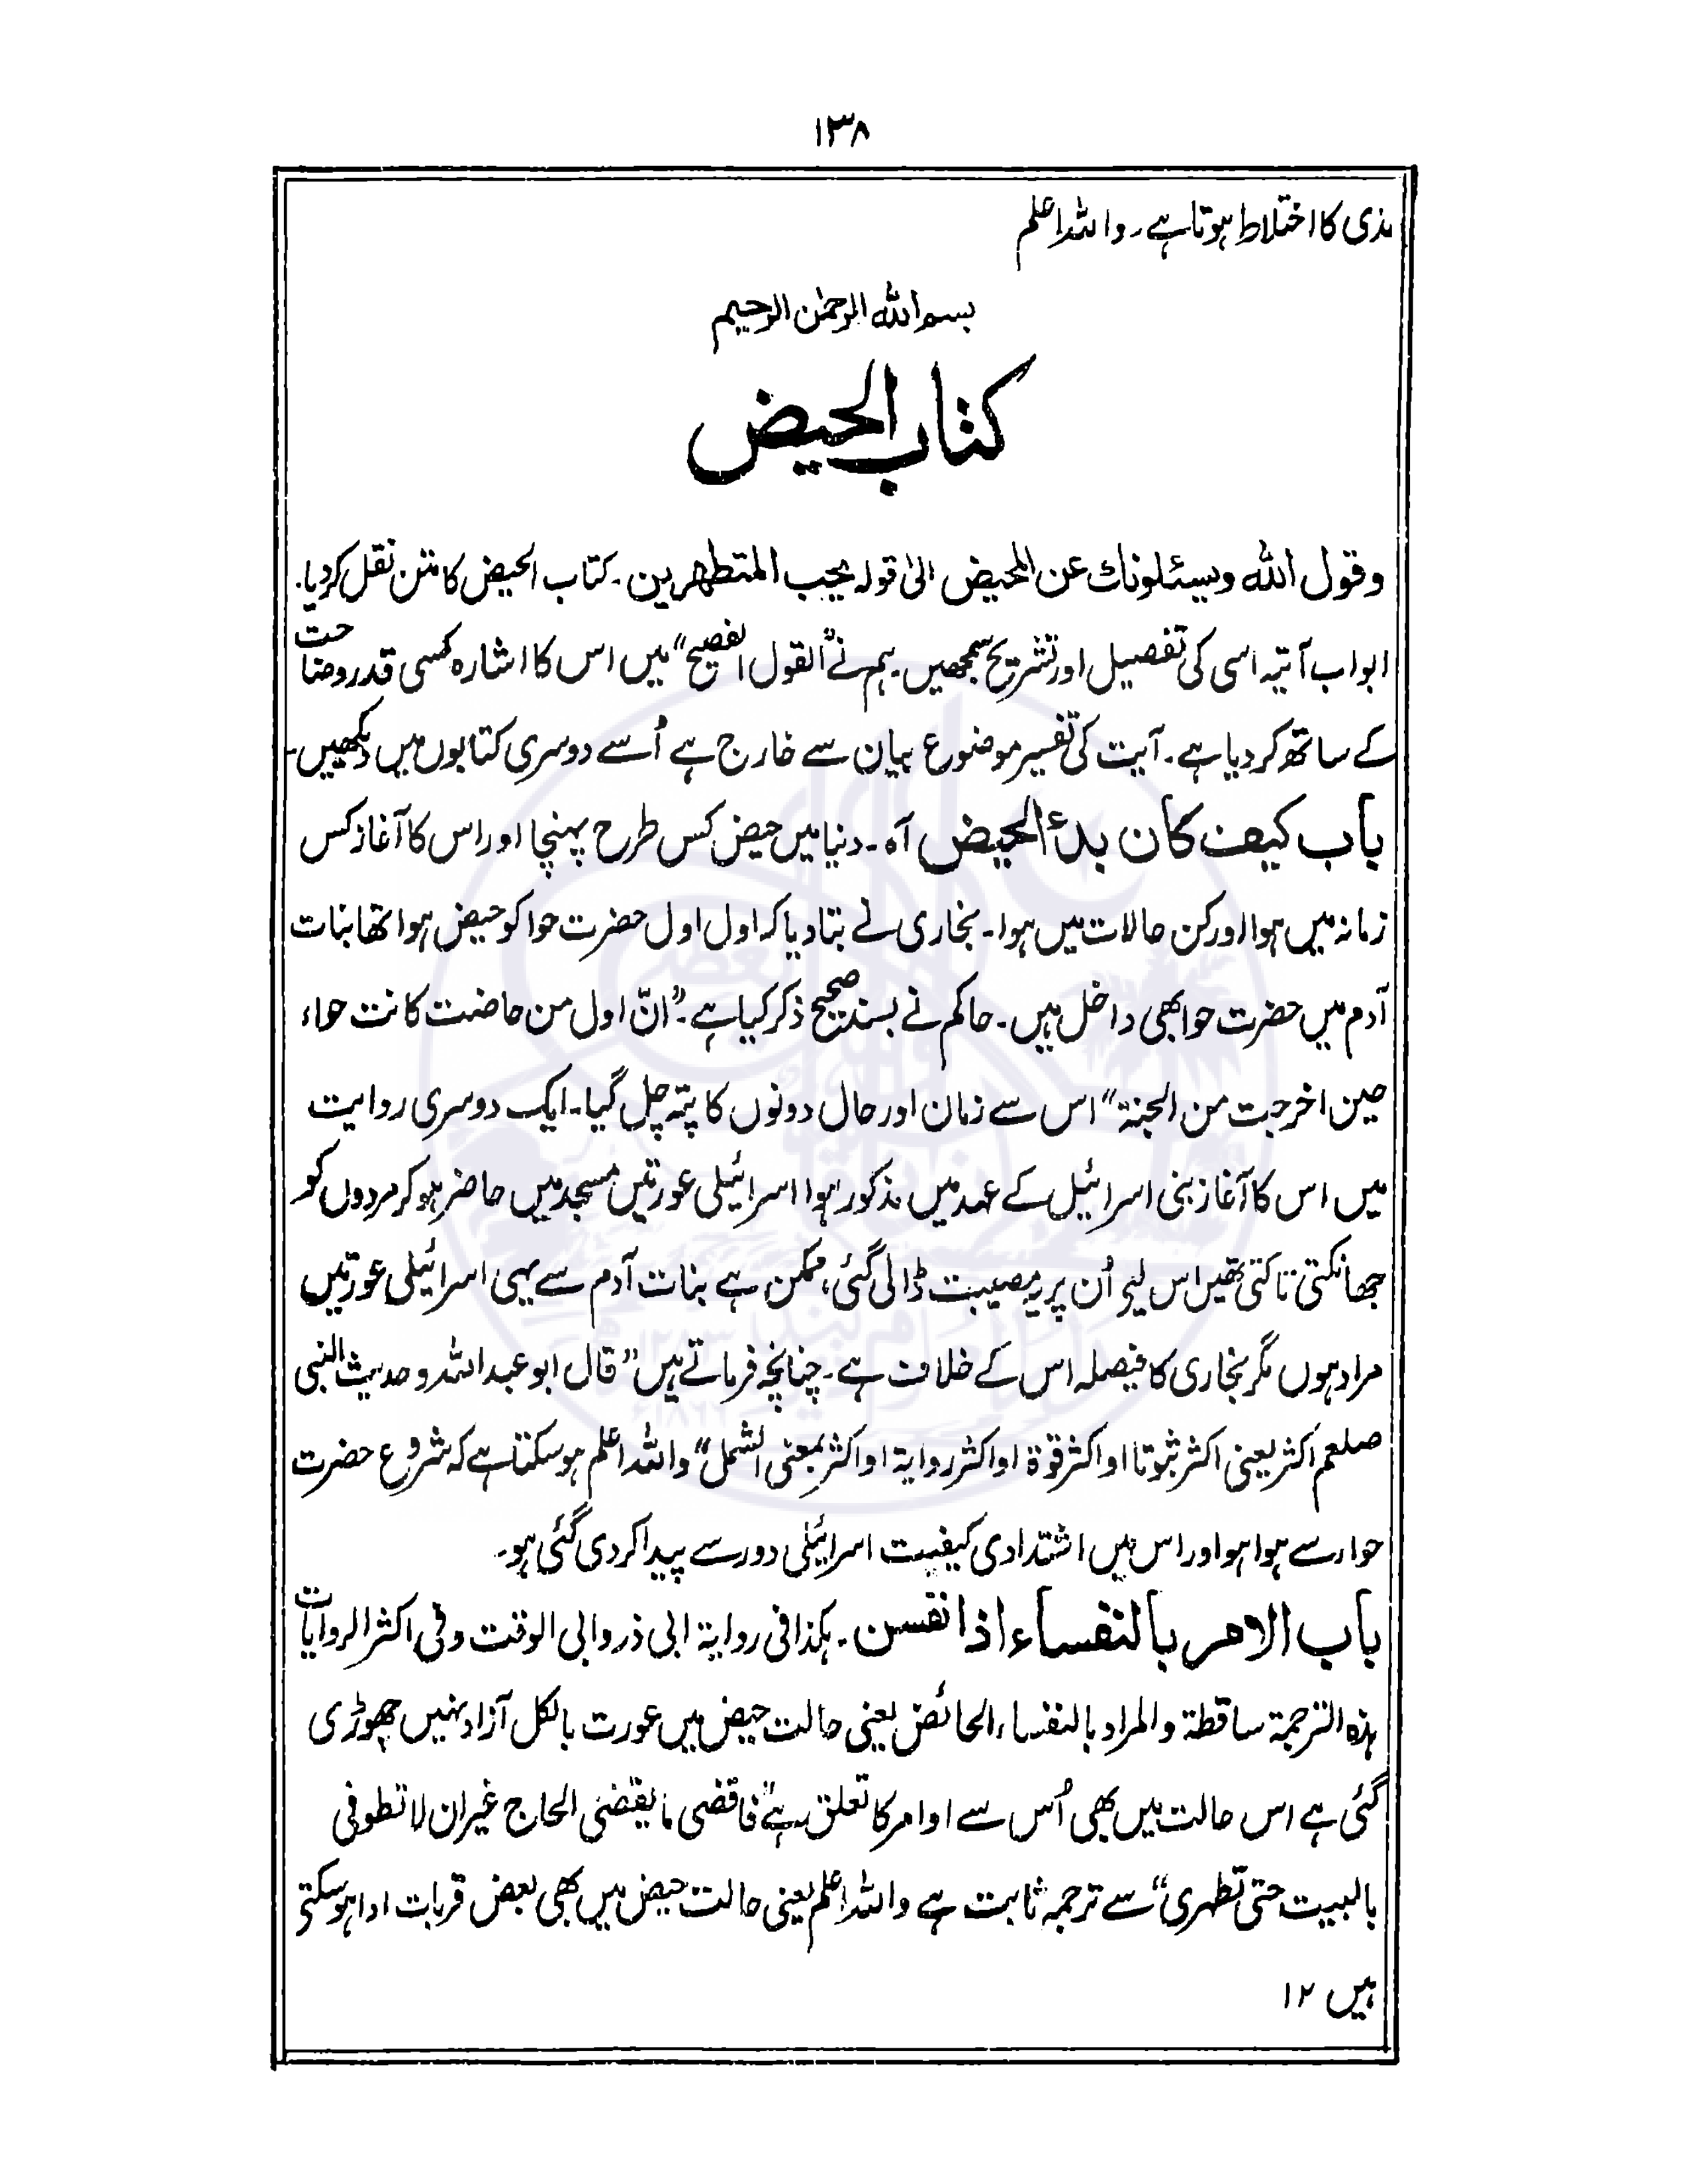 ۱۳۸
مذی کا اختلاط ہوتا ہے۔ واللہ اعلم
بسم اللہ الرحمٰن الرحیم
کتاب الحیض
وقول اللہ ویسئلونک عن المحیض الیٰ قولہ یحب المتطھرین۔ کتاب الحیض کا متن نقل کردیا۔
ابواب آتیہ اسی کی تفصیل اور تشریح سمجھیں۔ ہم نے ”القول الفصیح“ میں اس کا اشارہ کسی قدر وضاحت
کے ساتھ کردیا ہے۔ آیت کی تفسیر موضوع بیان سے خارج ہے اُسے دوسری کتابوں میں دیکھیں۔
باب کیف کان بدئ الحیض آہ۔ دنیا میں حیض کس طرح پہنچا اور اس کا آغاز کس
زمانہ میں ہوا اور کن حالات میں ہوا۔ بخاری نے بتادیا کہ اول اول حضرت حوا کو حیض ہوا تھا بنات
آدم میں حضرت حوا بھی داخل ہیں۔ حاکم نے بسند صحیح ذکر کیا ہے۔ ”انّ اول من حاضت کانت حواء
حین اخرجت من الجنۃ“ اس سے زمان اور حال دونوں کا پتہ چل گیا۔ ایک دوسری روایت
میں اس کا آغاز بنی اسرائیل کے عہد میں مذکور ہوا اسرائیلی عورتیں مسجد میں حاضر ہوکر مردوں کو
جھانکتی تاکتی تھیں اس لیے اُن پر یہ مصیبت ڈالی گئی، ممکن ہے بنات آدم سے یہی اسرائیلی عورتیں
مراد ہوں مگر بخاری کا فیصلہ اس کے خلاف ہے۔ چنانچہ فرماتے ہیں ”قال ابو عبداللہ وحدیث النبی
صلعم اکثر یعنی اکثر ثبوتا او اکثر قوۃ او اکثر روایۃ او اکثر بمعنی اشمل“ واللہ اعلم ہوسکتا ہے کہ شروع حضرت
حواء سے ہوا ہو اور اس میں اشتدادی کیفیت اسرائیلی دور سے پیدا کردی گئی ہو۔
باب الامر بالنفساء اذا نفسن۔ ہکذا فی روایۃ ابی ذر وابی الوقت وفی اکثر الروایات
ہذہ الترجمۃ ساقطۃ والمراد بالنفساء الحائض یعنی حالت حیض میں عورت بالکل آزاد نہیں چھوڑی
گئی ہے اس حالت میں بھی اُس سے اوامر کا تعلق ہے ”فاقضی ما یقضی الحاج غیر ان لا تطوفی
بالبیت حتی تطہری“ سے ترجمہ ثابت ہے واللہ اعلم یعنی حالت حیض میں بھی بعض قربات ادا ہوسکتی
ہیں ۱۲